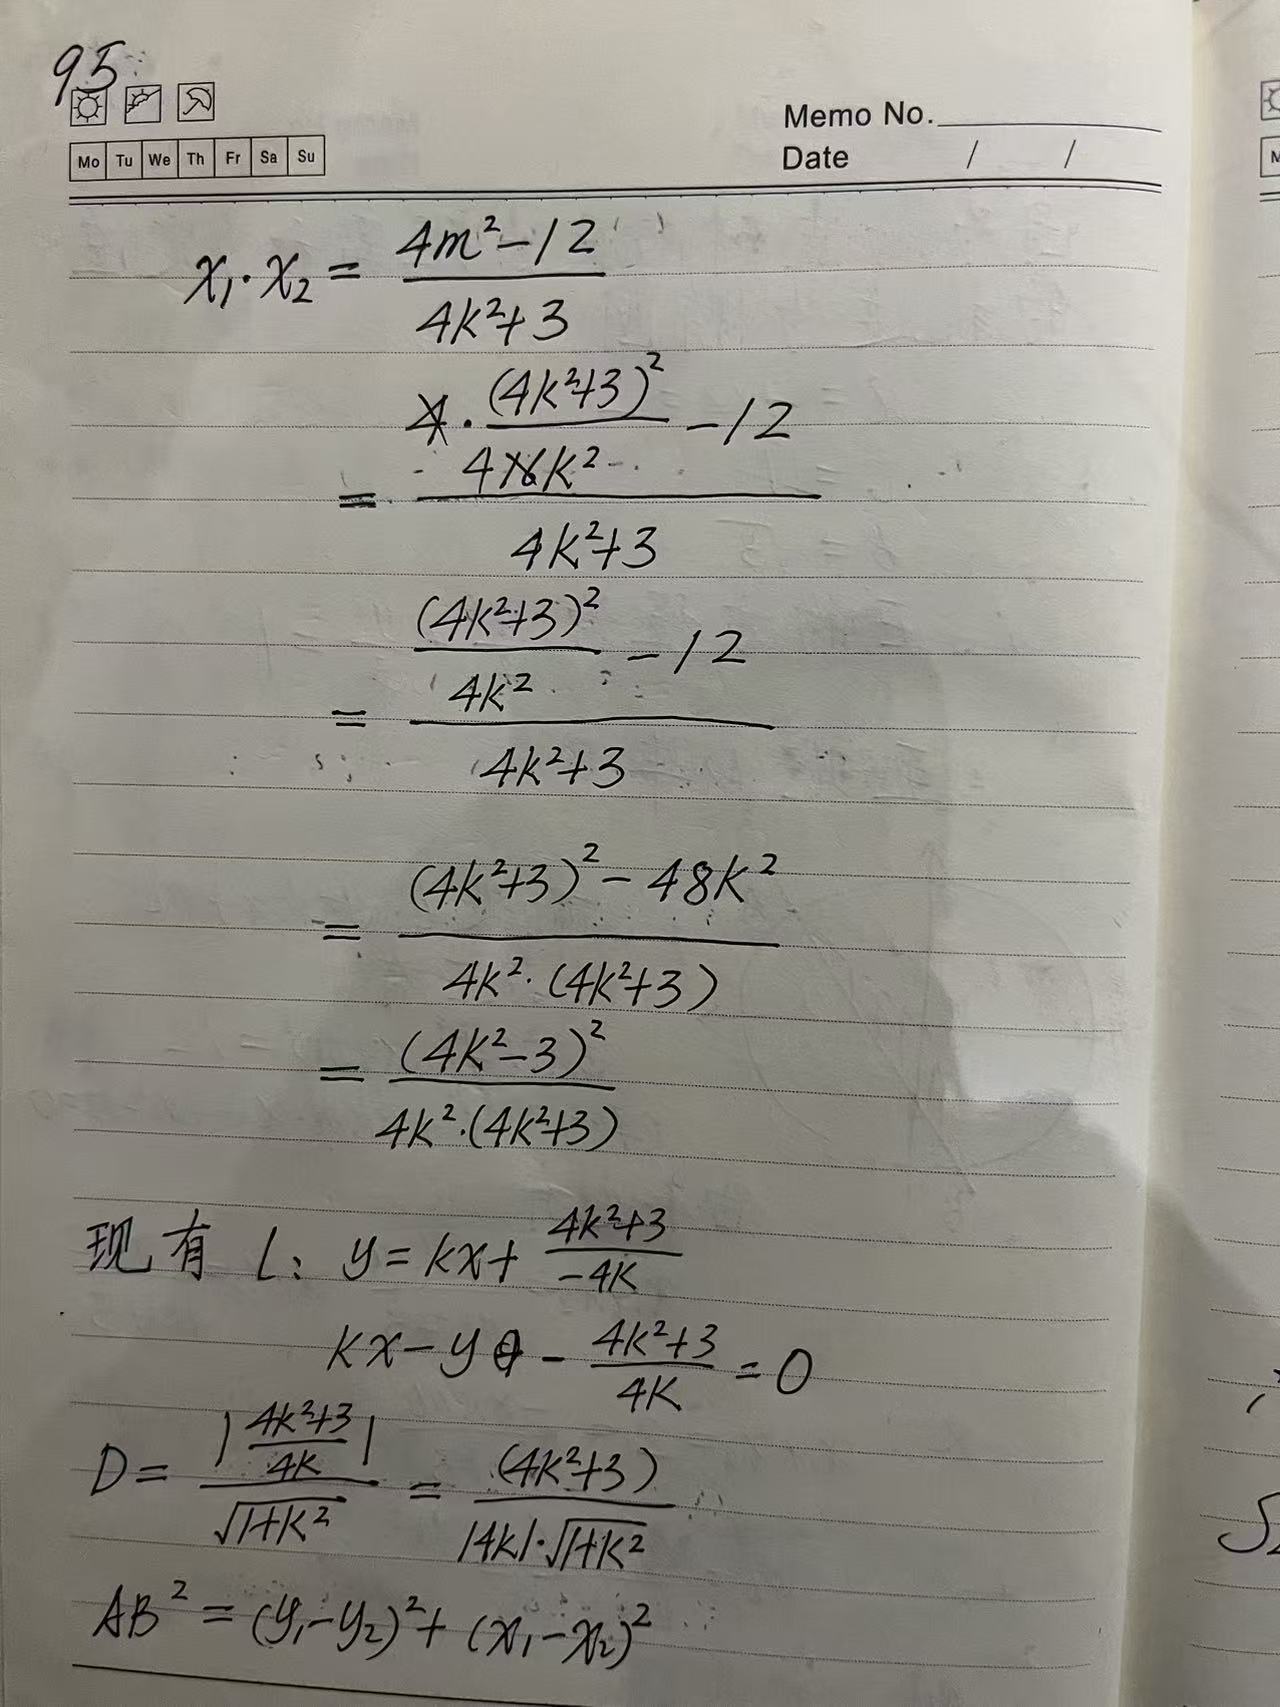 95
Mo Tu We Th Fr Sa Su
Memo No.
Date / /
x₁·x₂ = (4m²-12)/(4k²+3)
= (4·(4k²+3)²/(4×k²) -12)/(4k²+3)
= ((4k²+3)²/(4k²) -12)/(4k²+3)
= ((4k²+3)²-48k²)/(4k²·(4k²+3))
= (4k²-3)²/(4k²·(4k²+3))
现有 l: y=kx+(4k²+3)/(-4k)
kx-y-(4k²+3)/(4k)=0
D=|(4k²+3)/(4k)|/√(1+k²) = (4k²+3)/(|4k|·√(1+k²))
AB²=(y₁-y₂)²+(x₁-x₂)²